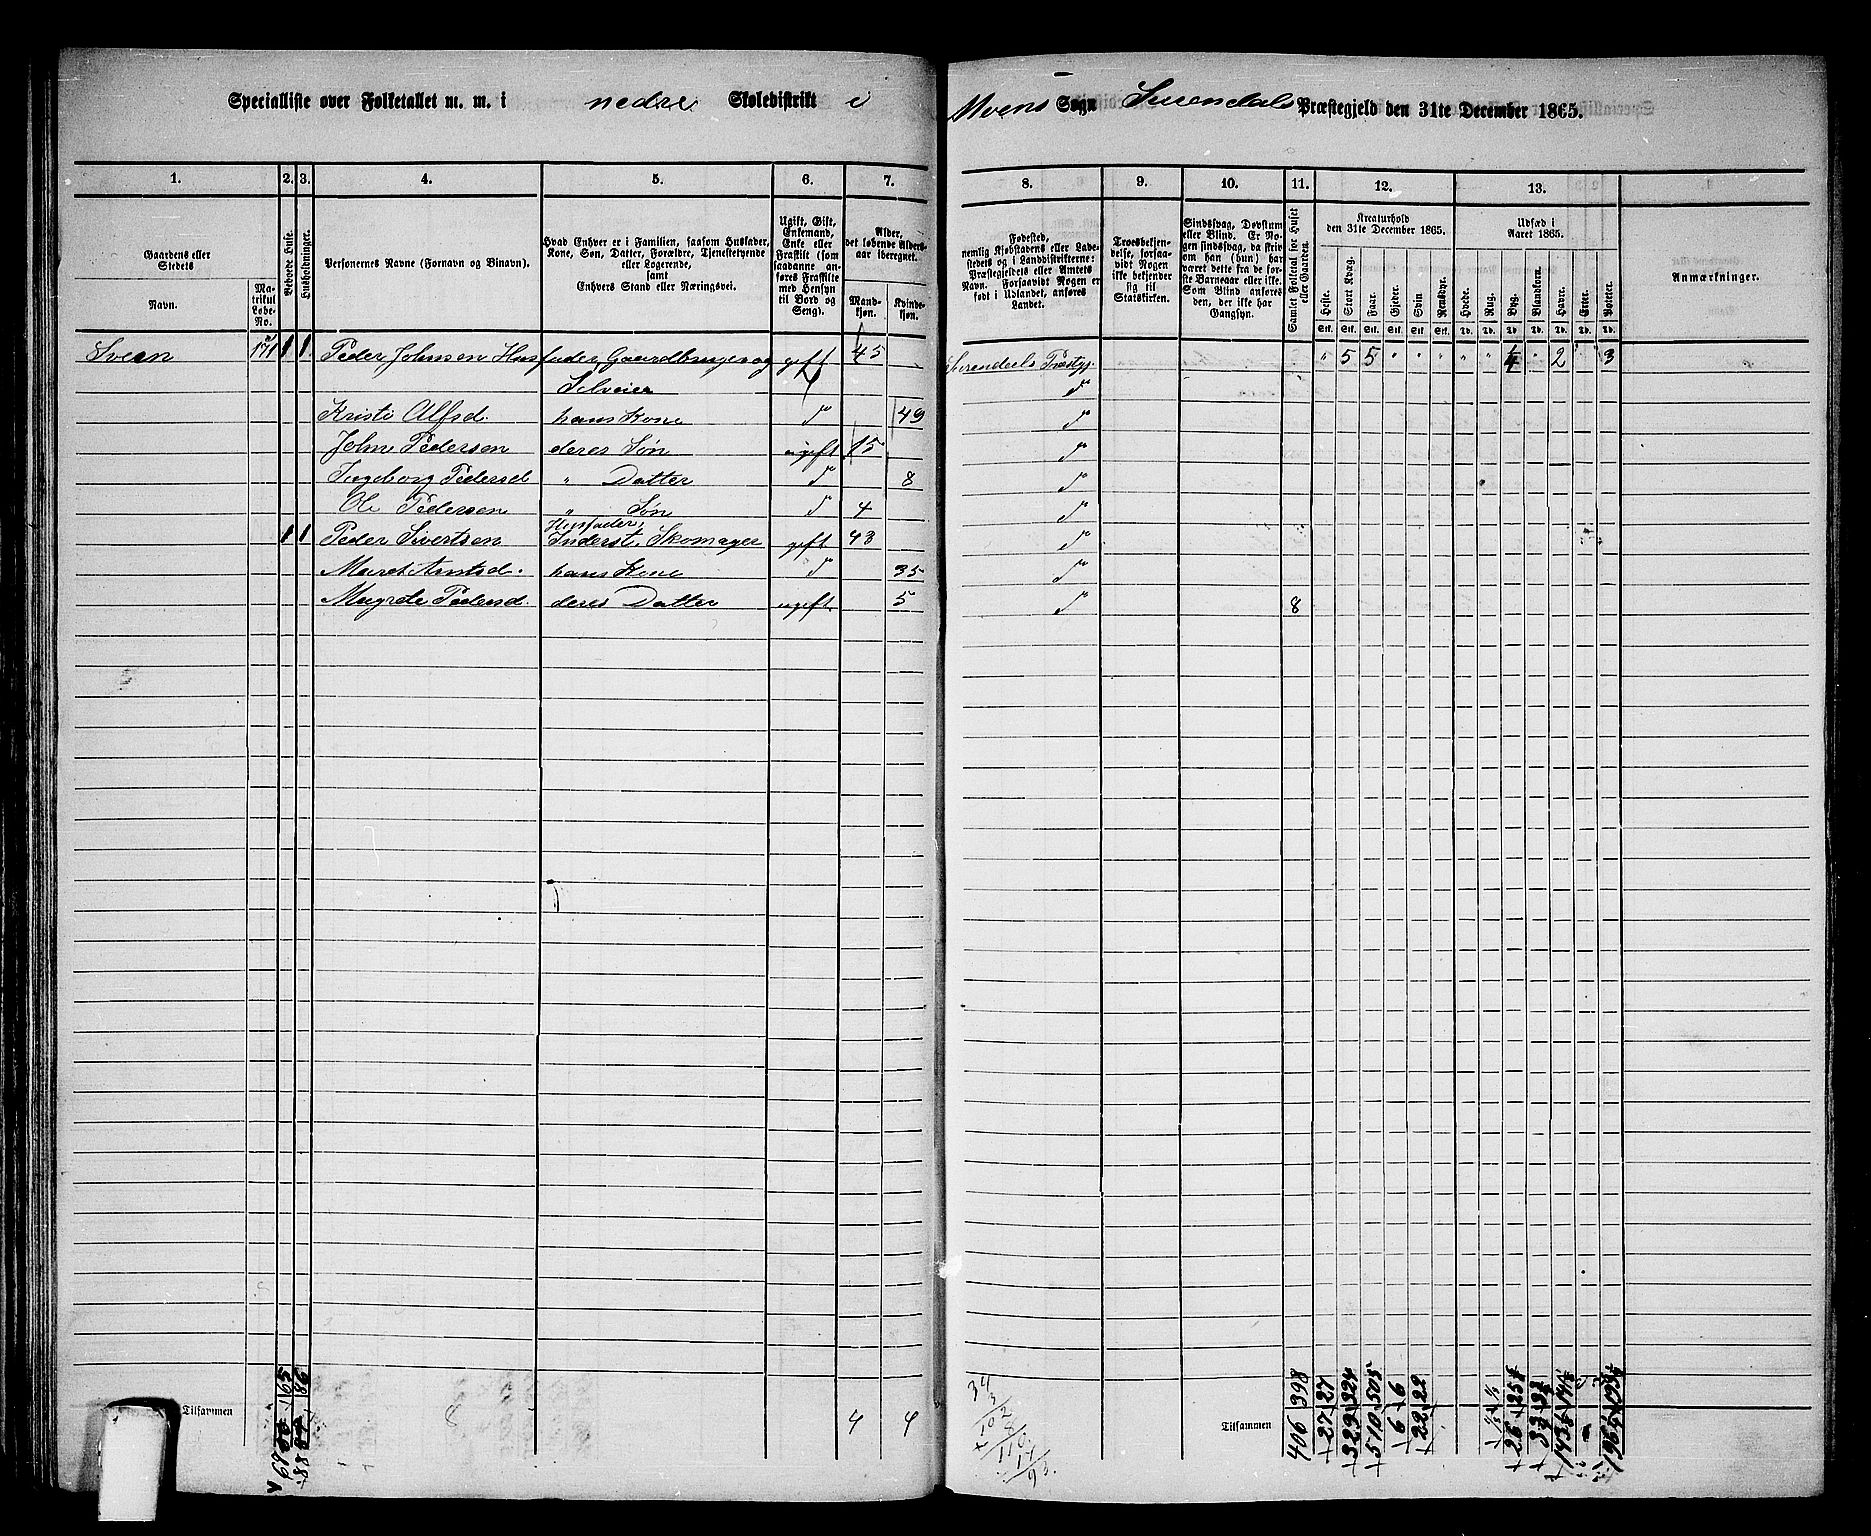 Specialliste over Folketallet m. m. i nedre Skoledistrikt i
Mvens Sogn Surendals Præstegjeld den 31te December 1865.
1. 2. 3. 4. 5. 6. 7. 8. 9. 10. 11. 12. 13.
Gaardens eller Stedets
Navn.
Matrikul Løbe-No.
Beboede Huse.
Husholdninger.
Personernes Navne (Fornavn og Binavn).
Hvad Enhver er i Familien, saasom Husfader,
Kone, Søn, Datter, Forældre, Tjenestetyende
eller Logerende,
samt
Enhvers Stand eller Næringsvei.
Ugift, Gift,
Enkemand,
Enke eller
Fraskilt (som
saadanne anføres Fraskilte
med Hensyn
til Bord og
Seng).
Alder,
det løbende Aldersaar iberegnet.
Mandkjøn.
Kvindekjøn.
Fødested,
nemlig Kjøbstadens eller Ladestedets og i Landdistrikterne:
Præstegjeldets eller Amtets
Navn. Forsaavidt Nogen er
født i Udlandet, anføres
Landet.
Troesbekjendelse, forsaavidt Nogen
ikke bekjender
sig til
Statskirken.
Sindssvag, Døvstum
eller Blind. Er Nogen sindssvag, da skrives om han (hun) har
været dette fra de første Barneaar eller ikke.
Som Blind anføres
den, der ikke har
Gangsyn.
Samlet Folketal for Huset eller Gaarden.
Kreaturhold
den 31te December 1865.
Heste. Stort Kvæg. Faar. Gjeder. Svin Rensdyr.
Stk. Stk. Stk. Stk. Stk. Stk.
Udsæd i
Aaret 1865.
Hvede. Rug. Byg. Blandkorn. Havre. Erter. Poteter.
Td. Td. Td. Td. Td. Td. Td.
Anmærkninger.
Sveen 171 1 1 Peder Johnsen Husfader Gaardbruger og gift 45 Surendals Præstgj. " 5 5 " " " " " 1/4 " 2 " 3
Selveier
Kristi Alfsd. hans Kone d° 49 d°
John Pedersen deres Søn ugift 15 d°
Ingeborg Pedersd " Datter d° 8 d°
Ole Pedersen " Søn d° 4 d°
Husfader,
1 1 Peder Sivertsen Inderst, Skomager gift 43 d°
Maret Arntsd. hans Kone d° 35 d°
Magrete Pedersd. deres Datter ugift 5 d° 8
Tilsammen 8 4 4
34
3
102
8
110
17
93.
Tilsammen 406 398 27 27 326 324 510 505 6 6 22 22